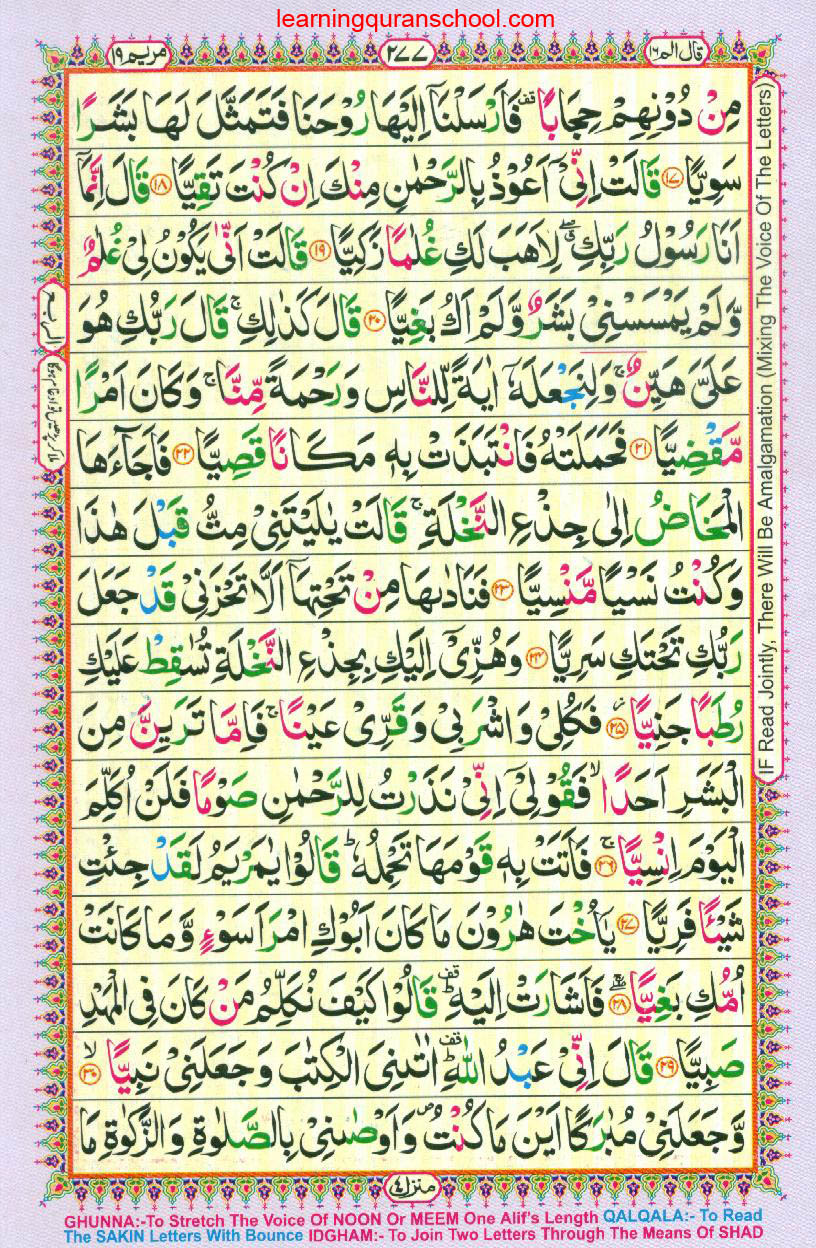 learningquranschool.com
قال الم ١٦
٢٧٧
مريم ١٩
مِنْ دُوْنِهِمْ حِجَابًا ۫ فَاَرْسَلْنَاۤ اِلَيْهَا رُوْحَنَا فَتَمَثَّلَ لَهَا بَشَرًا
سَوِيًّا ١٧ قَالَتْ اِنِّيْۤ اَعُوْذُ بِالرَّحْمٰنِ مِنْكَ اِنْ كُنْتَ تَقِيًّا ١٨ قَالَ اِنَّمَاۤ
اَنَا رَسُوْلُ رَبِّكِ ۖ لِاَهَبَ لَكِ غُلٰمًا زَكِيًّا ١٩ قَالَتْ اَنّٰى يَكُوْنُ لِيْ غُلٰمٌ
وَّلَمْ يَمْسَسْنِيْ بَشَرٌ وَّلَمْ اَكُ بَغِيًّا ٢٠ قَالَ كَذٰلِكِ ۚ قَالَ رَبُّكِ هُوَ
عَلَيَّ هَيِّنٌ ۚ وَلِنَجْعَلَهٗۤ اٰيَةً لِّلنَّاسِ وَرَحْمَةً مِّنَّا ۚ وَكَانَ اَمْرًا
مَّقْضِيًّا ٢١ فَحَمَلَتْهُ فَانْتَبَذَتْ بِهٖ مَكَانًا قَصِيًّا ٢٢ فَاَجَآءَهَا
الْمَخَاضُ اِلٰى جِذْعِ النَّخْلَةِ ۚ قَالَتْ يٰلَيْتَنِيْ مِتُّ قَبْلَ هٰذَا
وَكُنْتُ نَسْيًا مَّنْسِيًّا ٢٣ فَنَادٰىهَا مِنْ تَحْتِهَاۤ اَلَّا تَحْزَنِيْ قَدْ جَعَلَ
رَبُّكِ تَحْتَكِ سَرِيًّا ٢٤ وَهُزِّيْۤ اِلَيْكِ بِجِذْعِ النَّخْلَةِ تُسٰقِطْ عَلَيْكِ
رُطَبًا جَنِيًّا ٢٥ فَكُلِيْ وَاشْرَبِيْ وَقَرِّيْ عَيْنًا ۚ فَاِمَّا تَرَيِنَّ مِنَ
الْبَشَرِ اَحَدًا ۙ فَقُوْلِيْۤ اِنِّيْ نَذَرْتُ لِلرَّحْمٰنِ صَوْمًا فَلَنْ اُكَلِّمَ
الْيَوْمَ اِنْسِيًّا ۚ ٢٦ فَاَتَتْ بِهٖ قَوْمَهَا تَحْمِلُهٗ ؕ قَالُوْا يٰمَرْيَمُ لَقَدْ جِئْتِ
شَيْـًٔا فَرِيًّا ٢٧ يٰۤاُخْتَ هٰرُوْنَ مَا كَانَ اَبُوْكِ امْرَاَ سَوْءٍ وَّمَا كَانَتْ
اُمُّكِ بَغِيًّا ۖ ٢٨ فَاَشَارَتْ اِلَيْهِ ؕ قف قَالُوْا كَيْفَ نُكَلِّمُ مَنْ كَانَ فِي الْمَهْدِ
صَبِيًّا ٢٩ قَالَ اِنِّيْ عَبْدُ اللّٰهِ ؕ قف اٰتٰىنِيَ الْكِتٰبَ وَجَعَلَنِيْ نَبِيًّا ۙ ٣٠
وَّجَعَلَنِيْ مُبٰرَكًا اَيْنَ مَا كُنْتُ ۪ وَاَوْصٰىنِيْ بِالصَّلٰوةِ وَالزَّكٰوةِ مَا
منزل ٤
الربع
IF Read Jointly, There Will Be Amalgamation (Mixing The Voice Of The Letters)
GHUNNA:-To Stretch The Voice Of NOON Or MEEM One Alif's Length QALQALA:- To Read
The SAKIN Letters With Bounce IDGHAM:- To Join Two Letters Through The Means Of SHAD